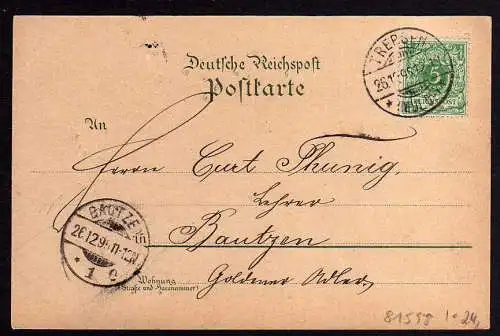 Deutsche Reichspost
Postkarte
TREBSEN
26.12.95
5
An
Herrn Curt Phunig,
Lehrer
BAUTZEN
26.12.95.11-12N
* 1 c
Bautzen
Wohnung
(Straße und Hausnummer)
Goldener Adler,
81598 1*24,